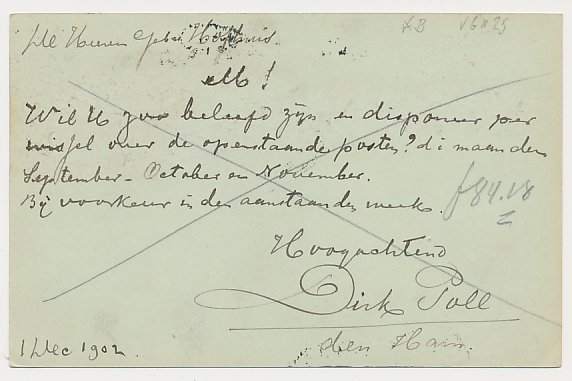 KB V6 n 25
De Heeren Gebrs
M !
Wil U zoo beleefd zijn en disponeer per
wissel over de openstaande posten? di maanden
September - October en November.
Bij voorkeur in den aanstaanden week.
f 84.18
Hoogachtend
Dirk Poll
den Ham
1 Dec 1902.